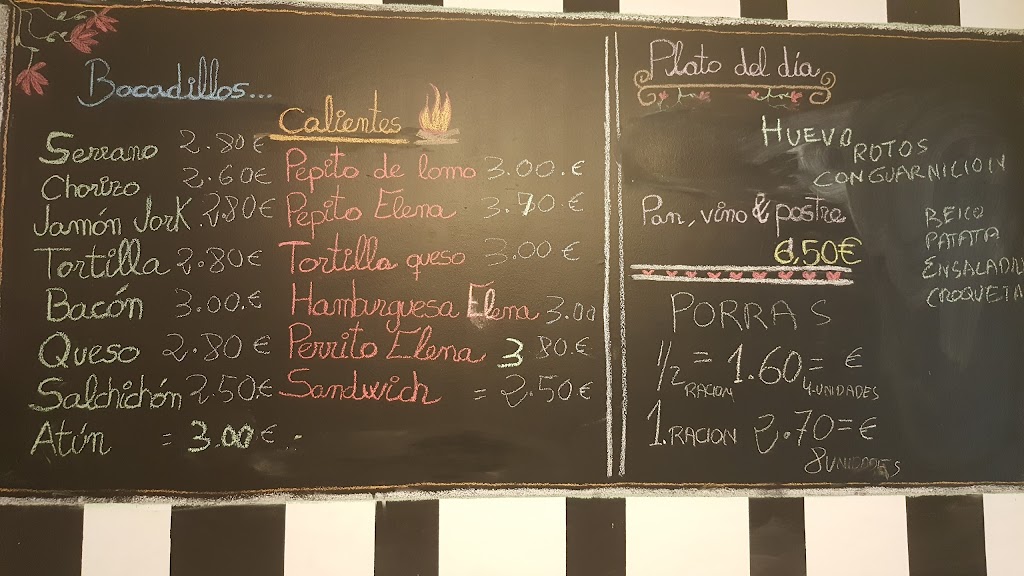 Bocadillos...
Serrano 2.80€
Chorizo 2.60€
Jamón Jork 2.80€
Tortilla 2.80€
Bacón 3.00€
Queso 2.80€
Salchichón 2.50€
Atún = 3.00€.-
Calientes
Pepito de lomo 3.00.€
Pepito Elena 3.70.€
Tortilla queso 3.00€
Hamburguesa Elena 3.00
Perrito Elena 3 80.€
Sandwich = 2.50€
Plato del día
HUEVO
ROTOS
CON GUARNICION
Pan, vino & postre
6.50€
BEICO
PATATA
ENSALADIL
CROQUETA
PORRAS
1/2 RACION = 1.60= €
4 UNIDADES
1. RACION 2.70=€
8 UNIDADES